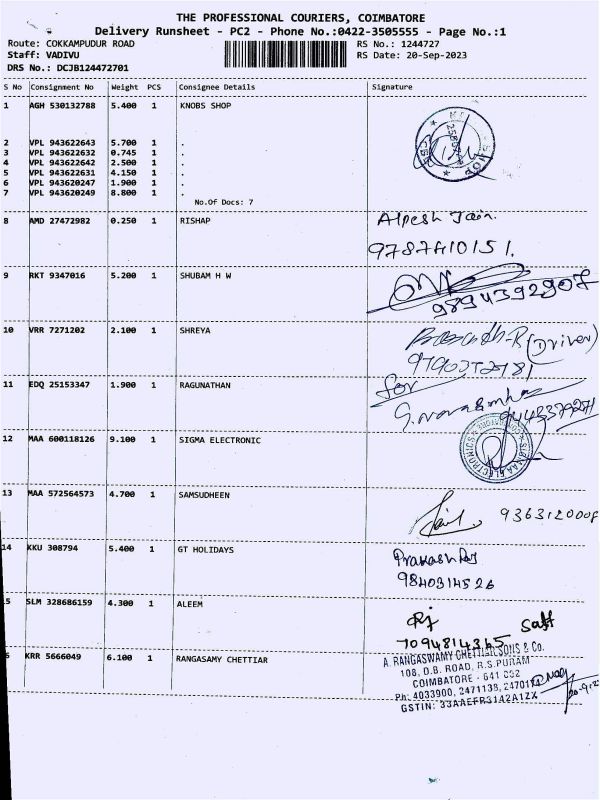 THE PROFESSIONAL COURIERS, COIMBATORE
Delivery Runsheet - PC2 - Phone No.:0422-3505555 - Page No.:1
Route: COKKAMPUDUR ROAD RS No.: 1244727
Staff: VADIVU RS Date: 20-Sep-2023
DRS No.: DCJB124472701
S No Consignment No Weight PCS Consignee Details Signature
1 AGH 530132788 5.400 1 KNOBS SHOP
2 VPL 943622643 5.700 1 .
3 VPL 943622632 0.745 1 .
4 VPL 943622642 2.500 1 .
5 VPL 943622631 4.150 1 .
6 VPL 943620247 1.900 1 .
7 VPL 943620249 8.800 1 .
No.Of Docs: 7
8 AMD 27472982 0.250 1 RISHAP Alpesh Jain.
9787410151.
9 RKT 9347016 5.200 1 SHUBAM H W
9894392907
10 VRR 7271202 2.100 1 SHREYA (Driver)
11 EDQ 25153347 1.900 1 RAGUNATHAN for
12 MAA 600118126 9.100 1 SIGMA ELECTRONIC
13 MAA 572564573 4.700 1 SAMSUDHEEN
14 KKU 308794 5.400 1 GT HOLIDAYS Prakash Raj
9840314526
5 SLM 328686159 4.300 1 ALEEM
7094814365
KRR 5666049 6.100 1 RANGASAMY CHETTIAR
A. RANGASWAMY CHETTIAR SONS & Co.
108, D.B. ROAD, R.S.PURAM
COIMBATORE - 641 002
Ph: 4033900, 2471138,
GSTIN: 33AAEFR3142A1ZX